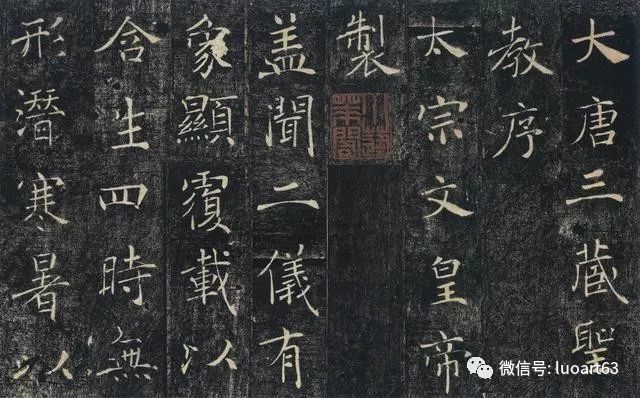 大唐三藏聖
教序
太宗文皇帝
製
盖聞二儀有
象顯覆載以
含生四時無
形潛寒暑以
微信号: luoart63